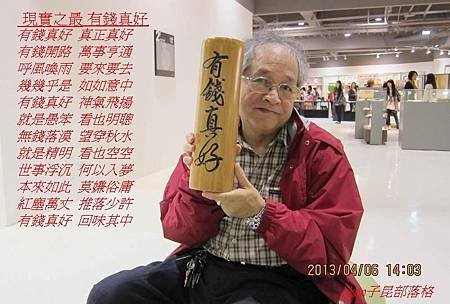 現實之最 有錢真好
有錢真好 真正真好
有錢開路 萬事亨通
呼風喚雨 要來要去
幾幾乎是 如如意中
有錢真好 神氣飛揚
就是愚笨 看也明聰
無錢落漠 望穿秋水
就是精明 看也空空
世事浮沉 何以入夢
本來如此 莫謙俗庸
紅塵萬丈 推落少許
有錢真好 回味其中
有錢真好
2013/04/06 14:03
子昆部落格